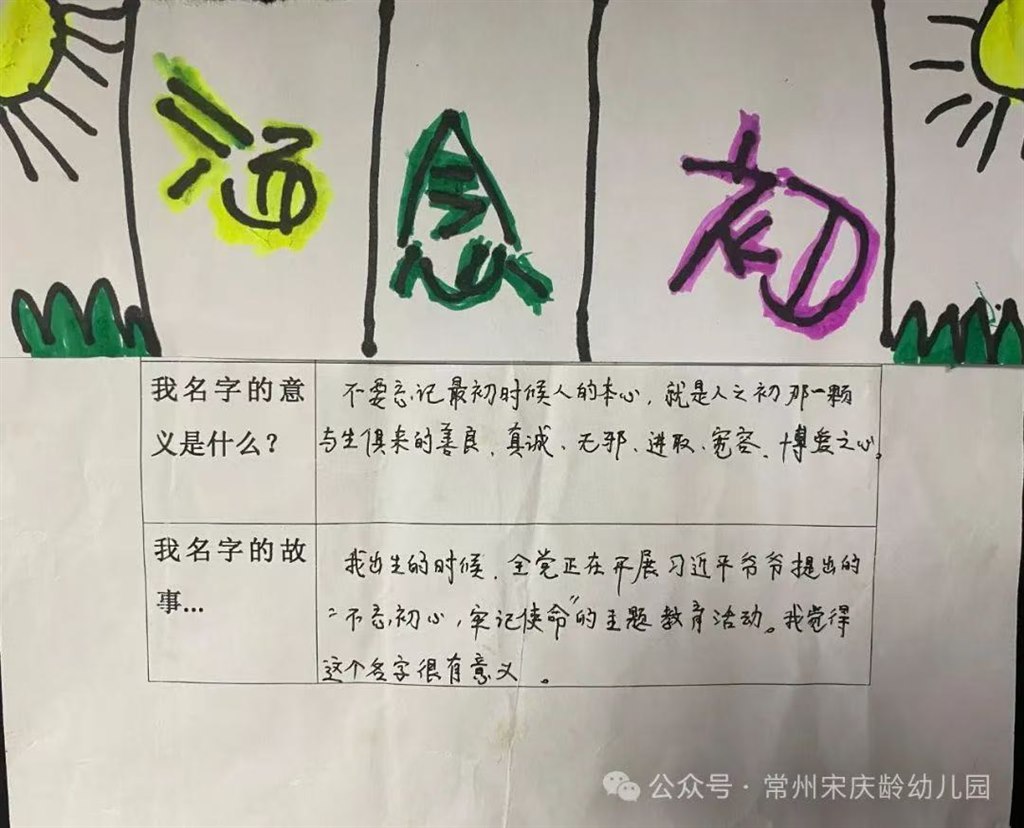 汤念初
我名字的意
义是什么？
不要忘记最初时候人的本心，就是人之初那一颗
与生俱来的善良、真诚、无邪、进取、宽容、博爱之心。
我名字的故
事...
我出生的时候，全党正在开展习近平爷爷提出的
“不忘初心，牢记使命”的主题教育活动。我觉得
这个名字很有意义。
公众号·常州宋庆龄幼儿园